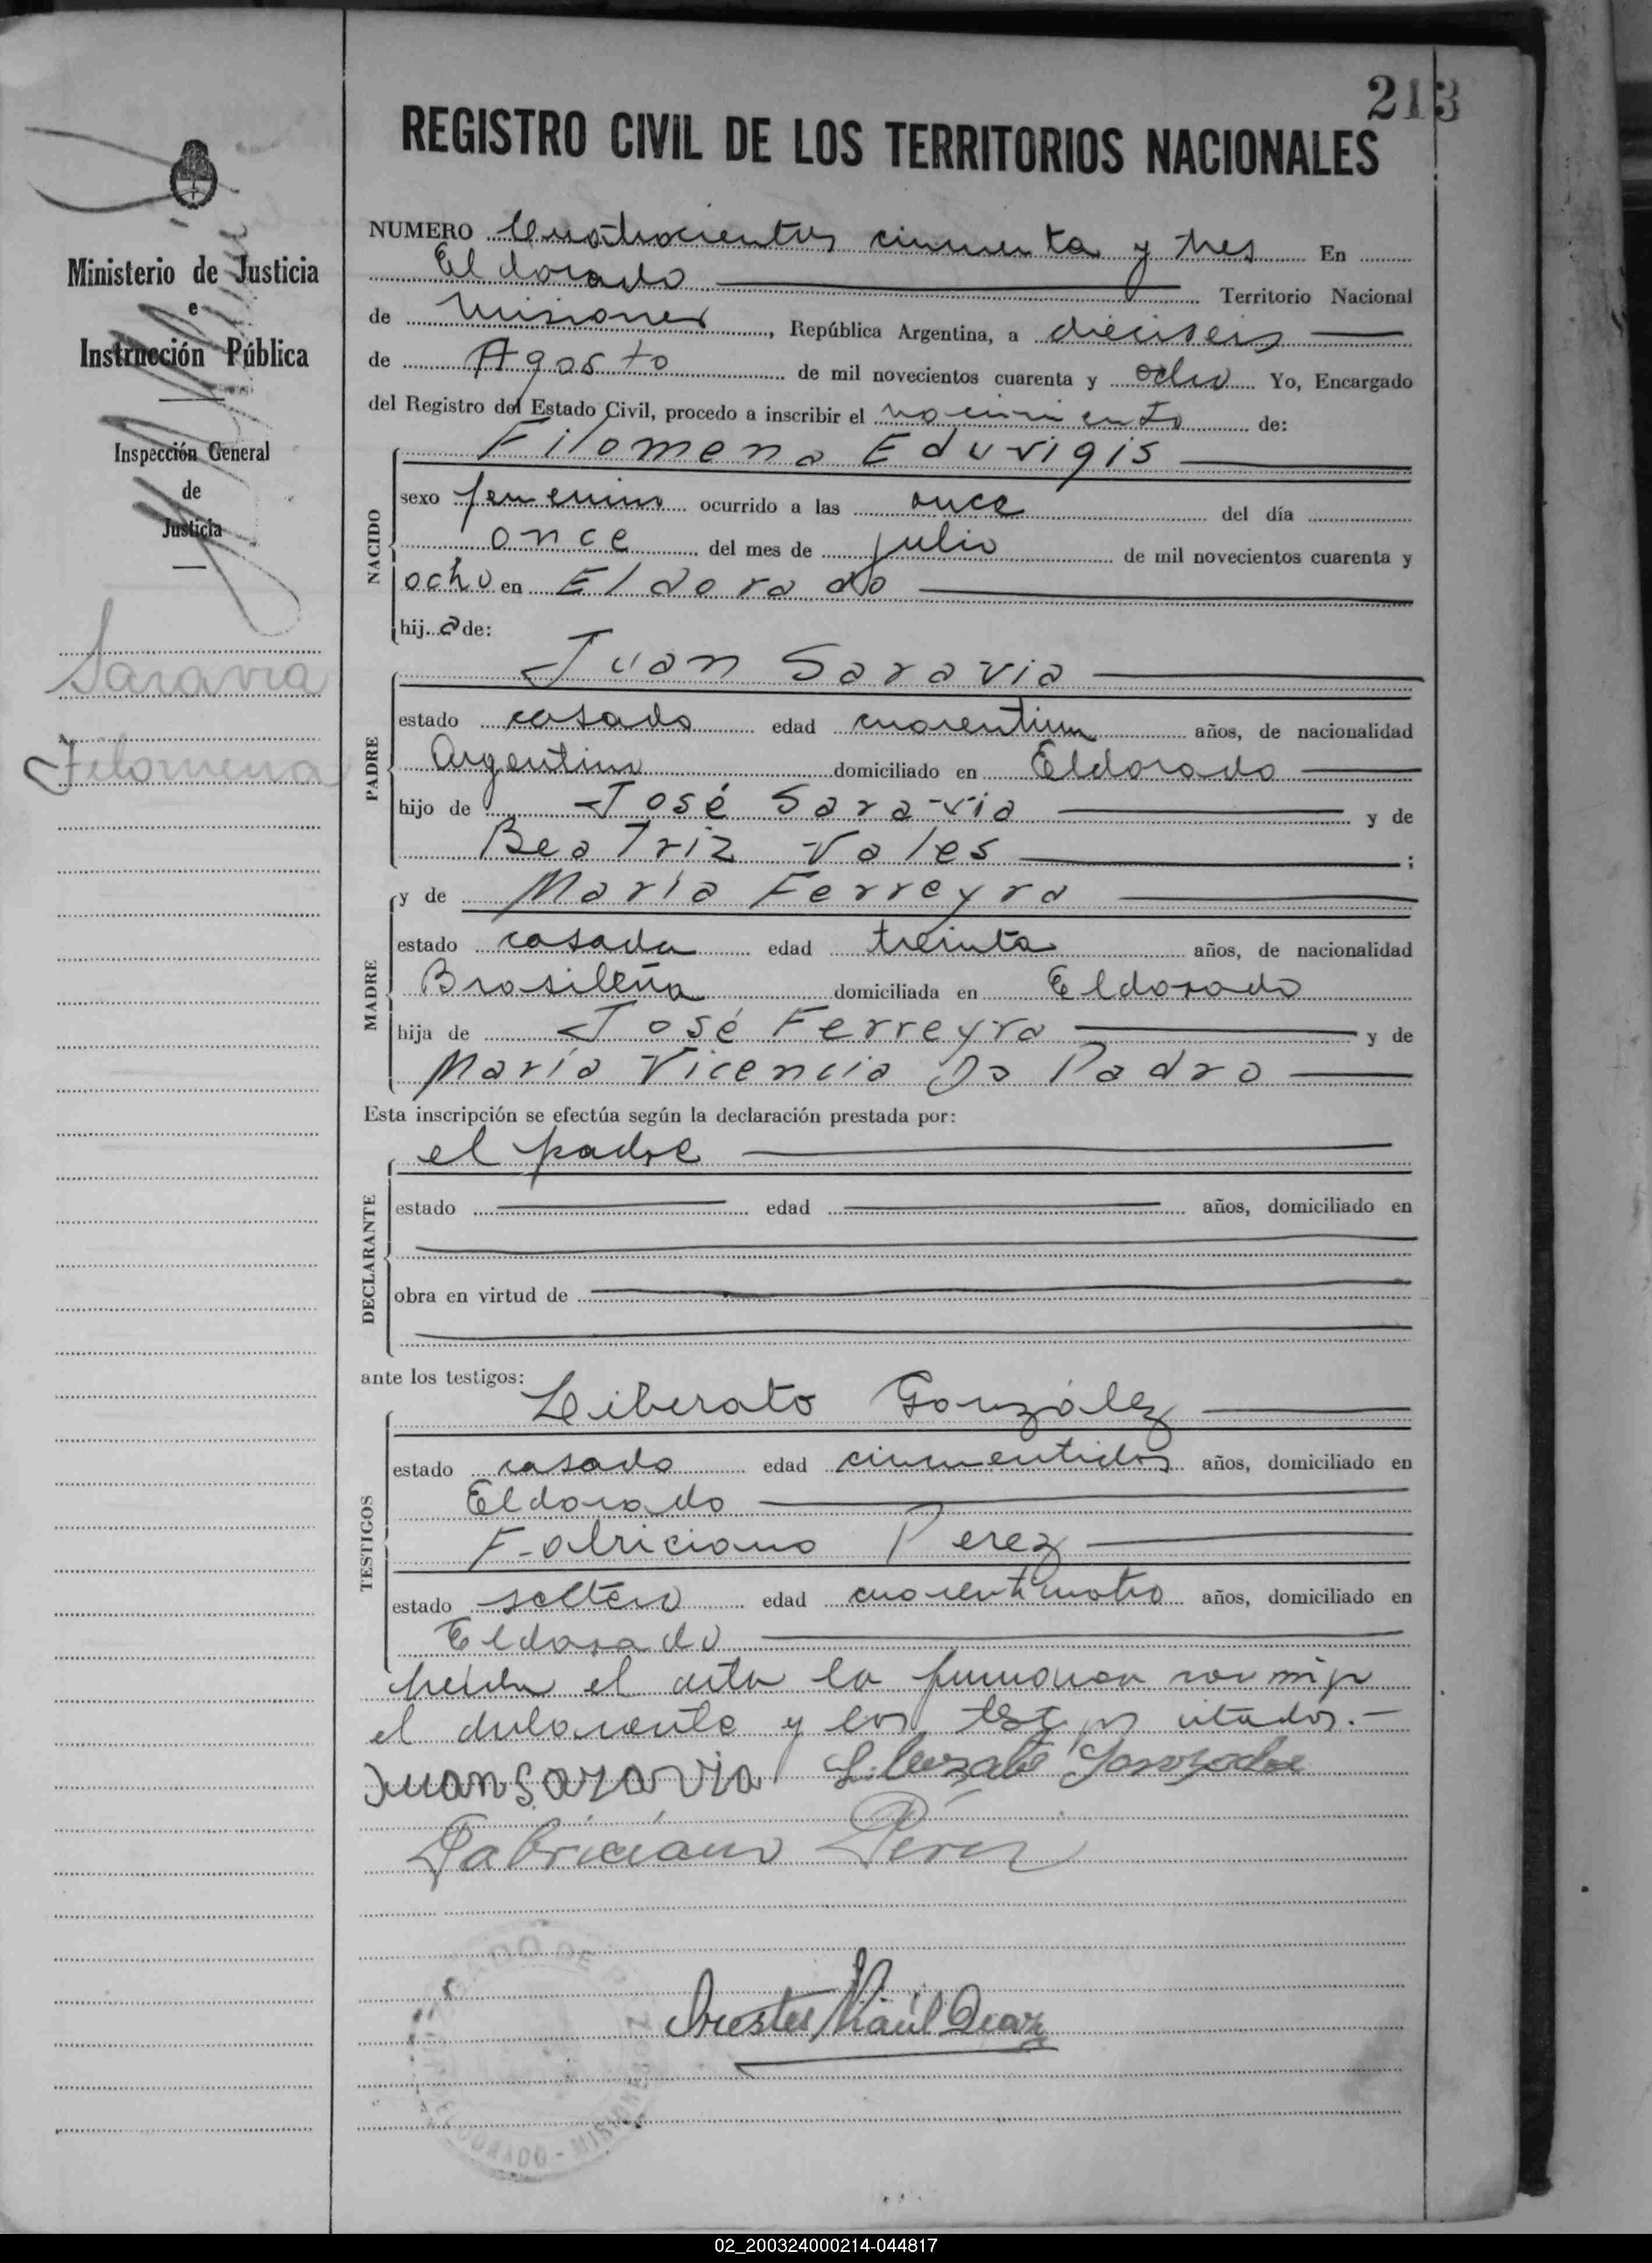 213
REGISTRO CIVIL DE LOS TERRITORIOS NACIONALES
Ministerio de Justicia
e
Instrucción Pública
Inspección General
de
Justicia
Saravia
Filomena
NUMERO Cuatrocientos cincuenta y tres En
Eldorado Territorio Nacional
de Misiones, República Argentina, a dieciseis
de Agosto de mil novecientos cuarenta y ocho Yo, Encargado
del Registro del Estado Civil, procedo a inscribir el nacimiento de:
Filomena Eduvigis
NACIDO
sexo femenino ocurrido a las once del día
once del mes de julio de mil novecientos cuarenta y
ocho en Eldorado
hija de:
Juan Saravia
PADRE
estado casado edad cuarentiun años, de nacionalidad
Argentina domiciliado en Eldorado
hijo de José Saravia y de
Beatriz Vales ;
y de María Ferreyra
MADRE
estado casada edad treinta años, de nacionalidad
Brasileña domiciliada en Eldorado
hija de José Ferreyra y de
María Vicencia Do Padro
Esta inscripción se efectúa según la declaración prestada por:
el padre
DECLARANTE
estado edad años, domiciliado en
obra en virtud de
ante los testigos:
Liberato González
TESTIGOS
estado casado edad cincuentidos años, domiciliado en
Eldorado
Fabriciano Perez
estado soltero edad cuarenticuatro años, domiciliado en
Eldorado
Leida el acta la firmaron conmigo
el declarante y los testigos citados.-
Juan Saravia Liberato Gonzalez
Fabriciano Pérez
Orestes Raúl Diaz
ELDORADO - MISIONES
02_200324000214-044817